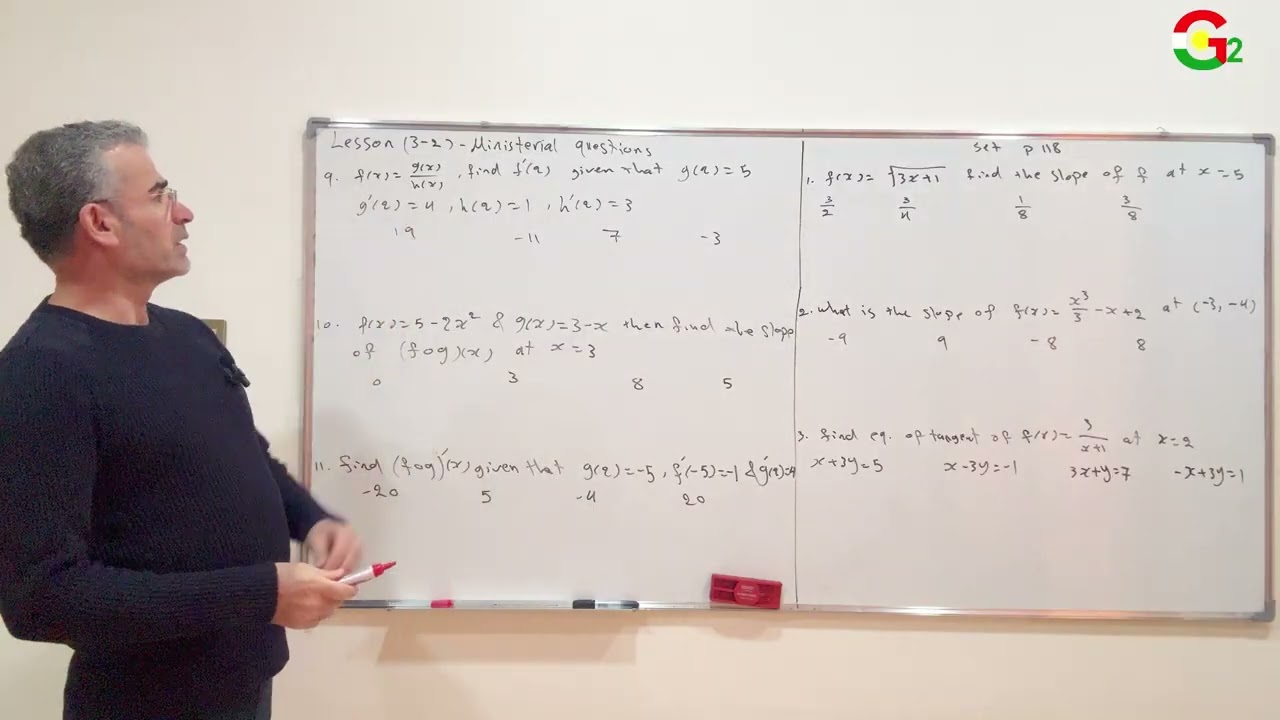 G2
Lesson (3-2) - Ministerial questions
9. f(x) = g(x)/h(x), find f'(2) given that g(2) = 5
g'(2) = 4, h(2) = 1, h'(2) = 3
19 -11 7 -3
10. f(x) = 5 - 2x² & g(x) = 3 - x then find the slope
of (fog)(x) at x = 3
0 3 8 5
11. find (fog)'(x) given that g(2) = -5, f'(-5) = -1 & g'(2) = 4
-20 5 -4 20
Set p 118
1. f(x) = √(3x+1) find the slope of f at x = 5
3/2 3/4 1/8 3/8
2. what is the slope of f(x) = x³/3 - x + 2 at (-3, -4)
-9 9 -8 8
3. find eq. of tangent of f(x) = 3/(x+1) at x = 2
x+3y=5 x-3y=-1 3x+y=7 -x+3y=1